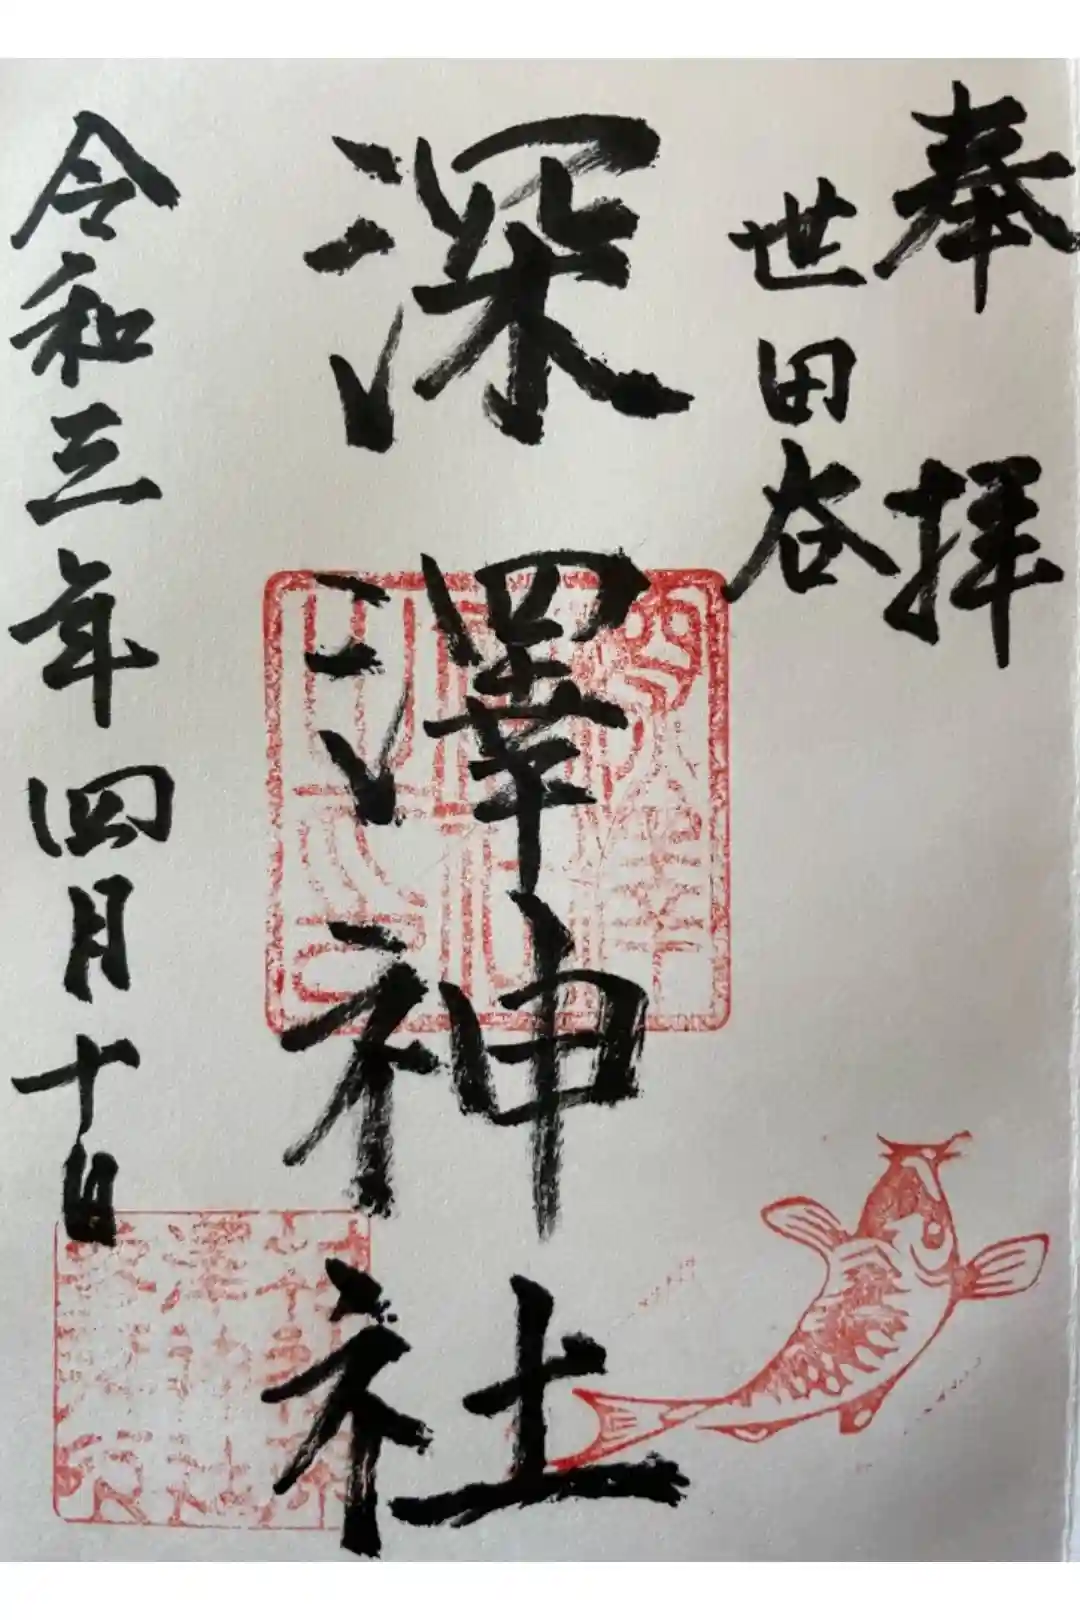 奉拝
世田谷
深澤神社
令和三年四月十日